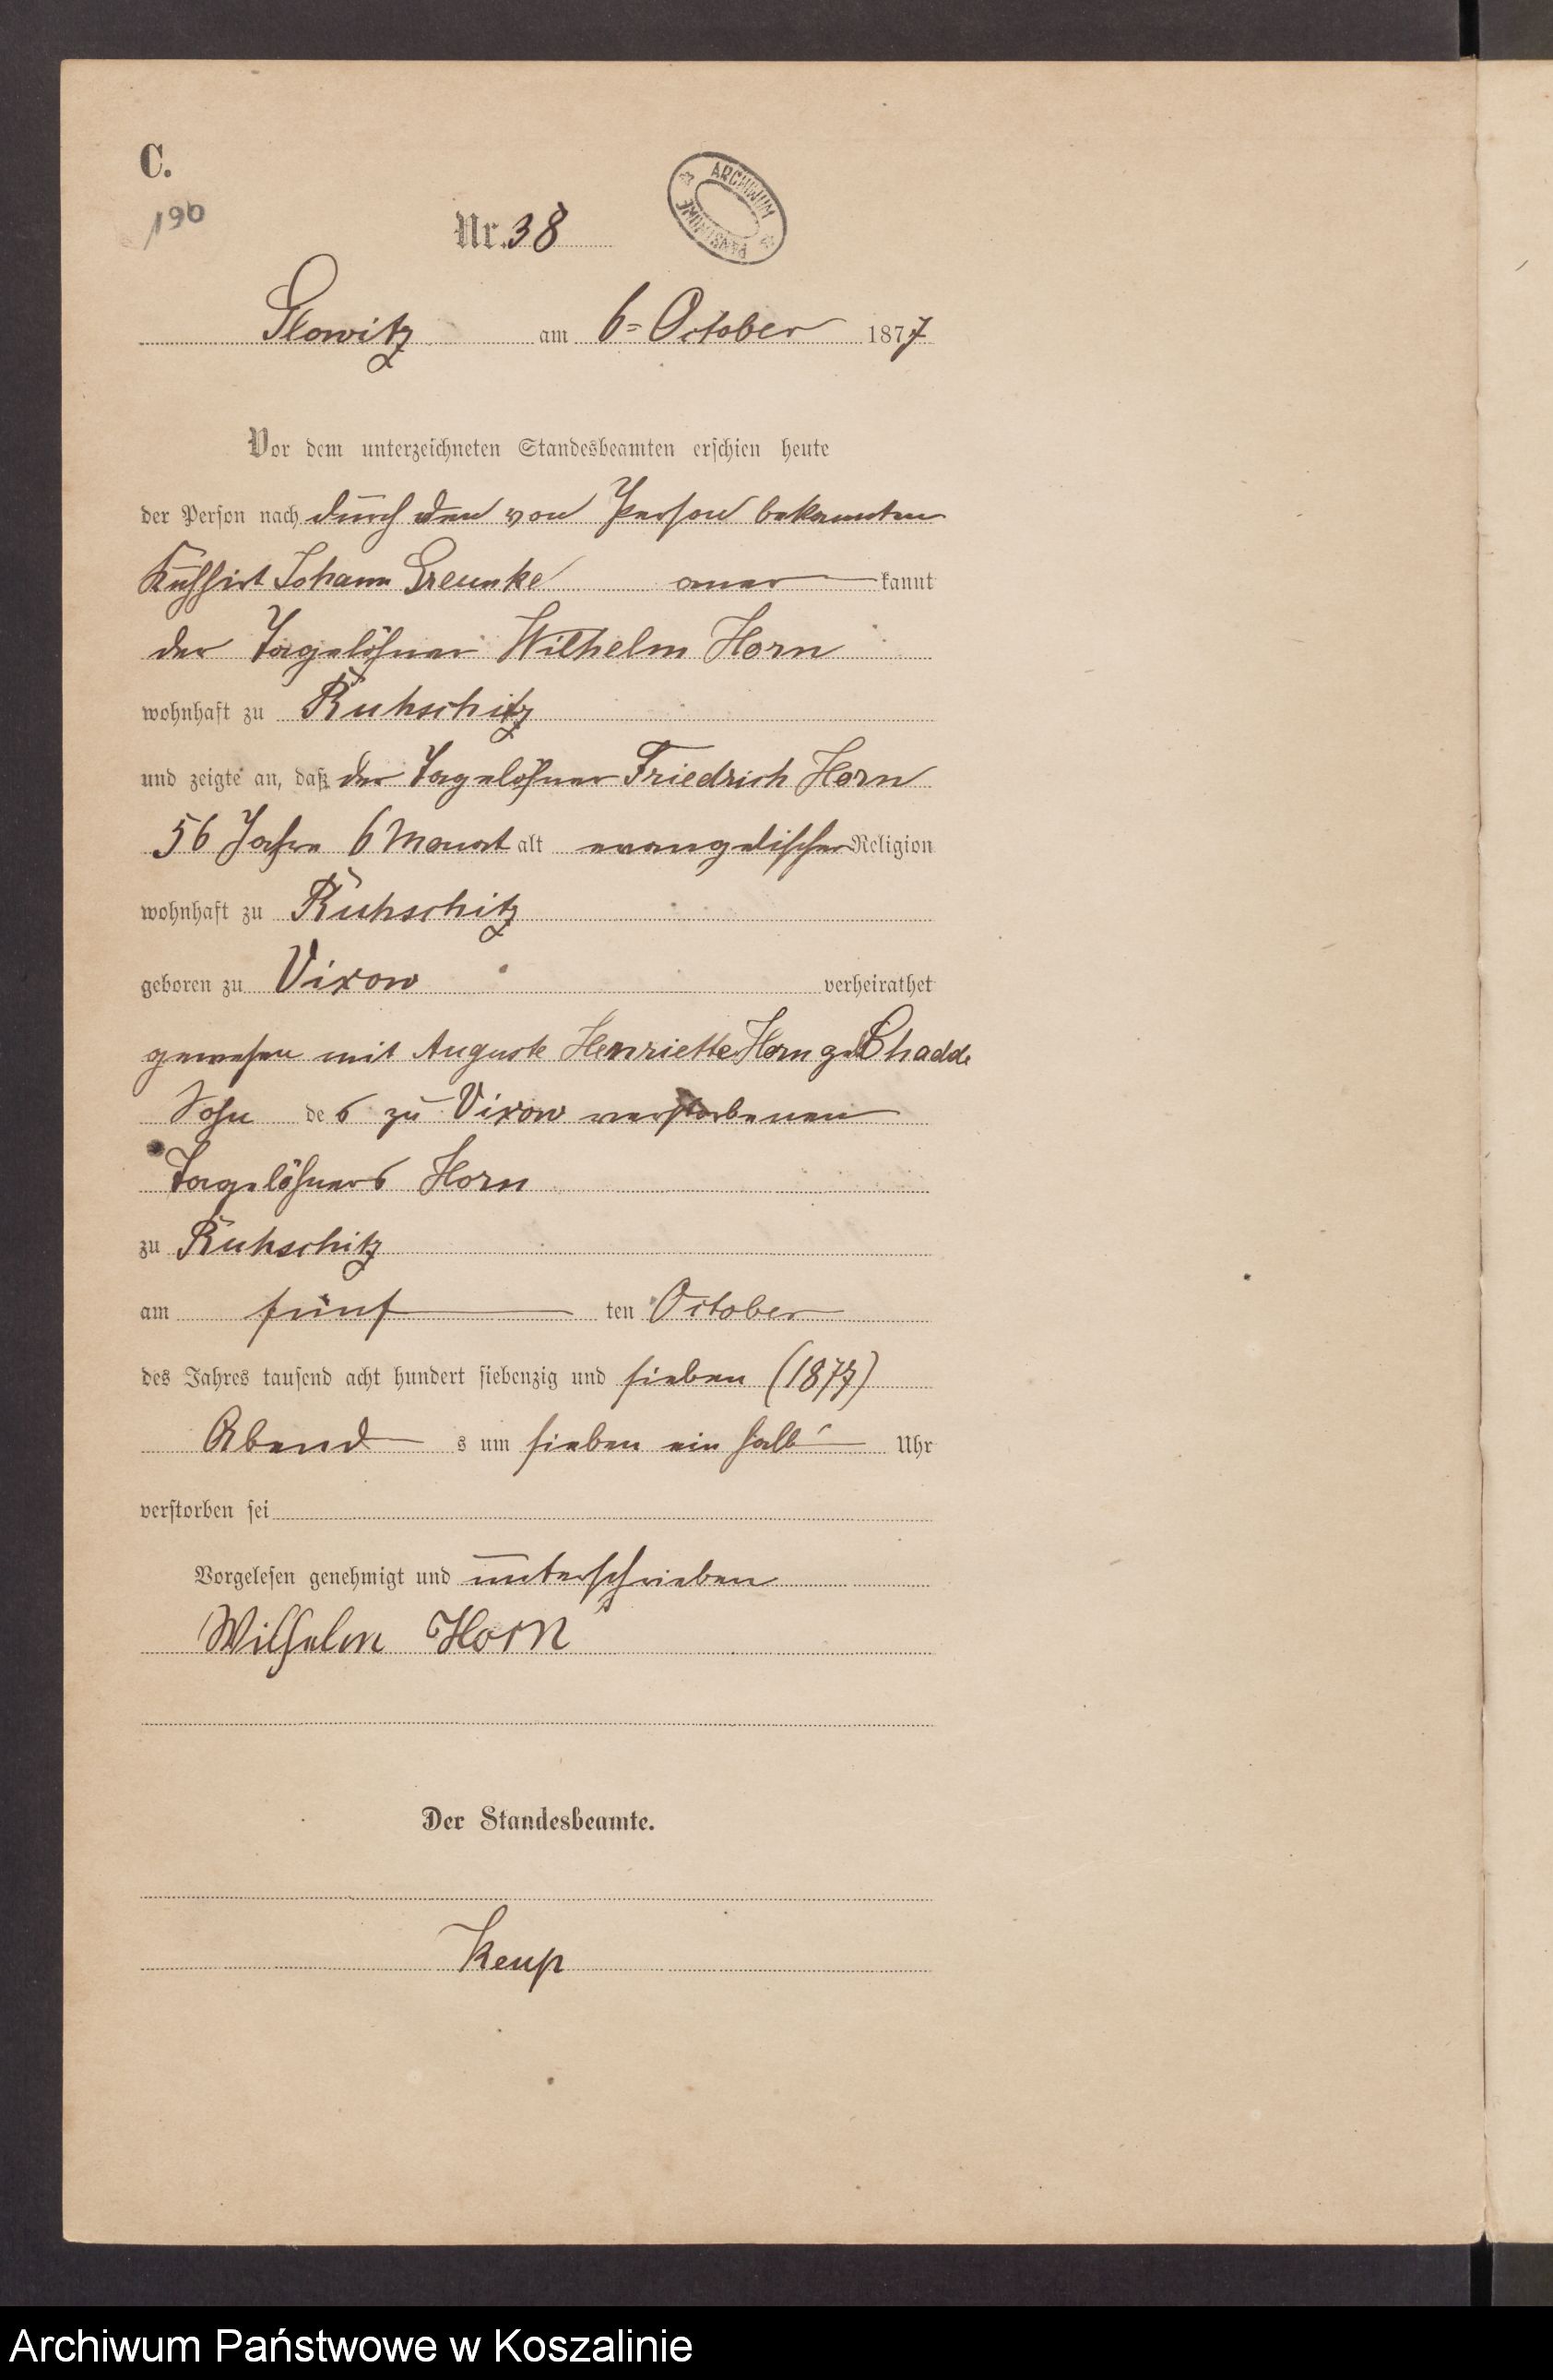 C.
190
Nr. 38
ARCHIWUM PAŃSTWOWE
Glowitz am 6= October 1877
Vor dem unterzeichneten Standesbeamten erschien heute
der Person nach durch den von Person bekannten
Kuhhirt Johann Greunke aner kannt
der Tagelöhner Wilhelm Horn
wohnhaft zu Ruhschitz
und zeigte an, daß der Tagelöhner Friedrich Horn
56 Jahre 6 Monat alt evangelischer Religion
wohnhaft zu Ruhschitz
geboren zu Vixow verheirathet
gewesen mit Auguste Henriette Horn geb
Sohn des zu Vixow verstorbenen
Tagelöhners Horn
zu Ruhschitz
am fünf ten October
des Jahres tausend acht hundert siebenzig und sieben (1877)
Abend s um sieben ein halb Uhr
verstorben sei
Vorgelesen genehmigt und unterschrieben
Wilhelm Horn
Der Standesbeamte.
Keup
Archiwum Państwowe w Koszalinie